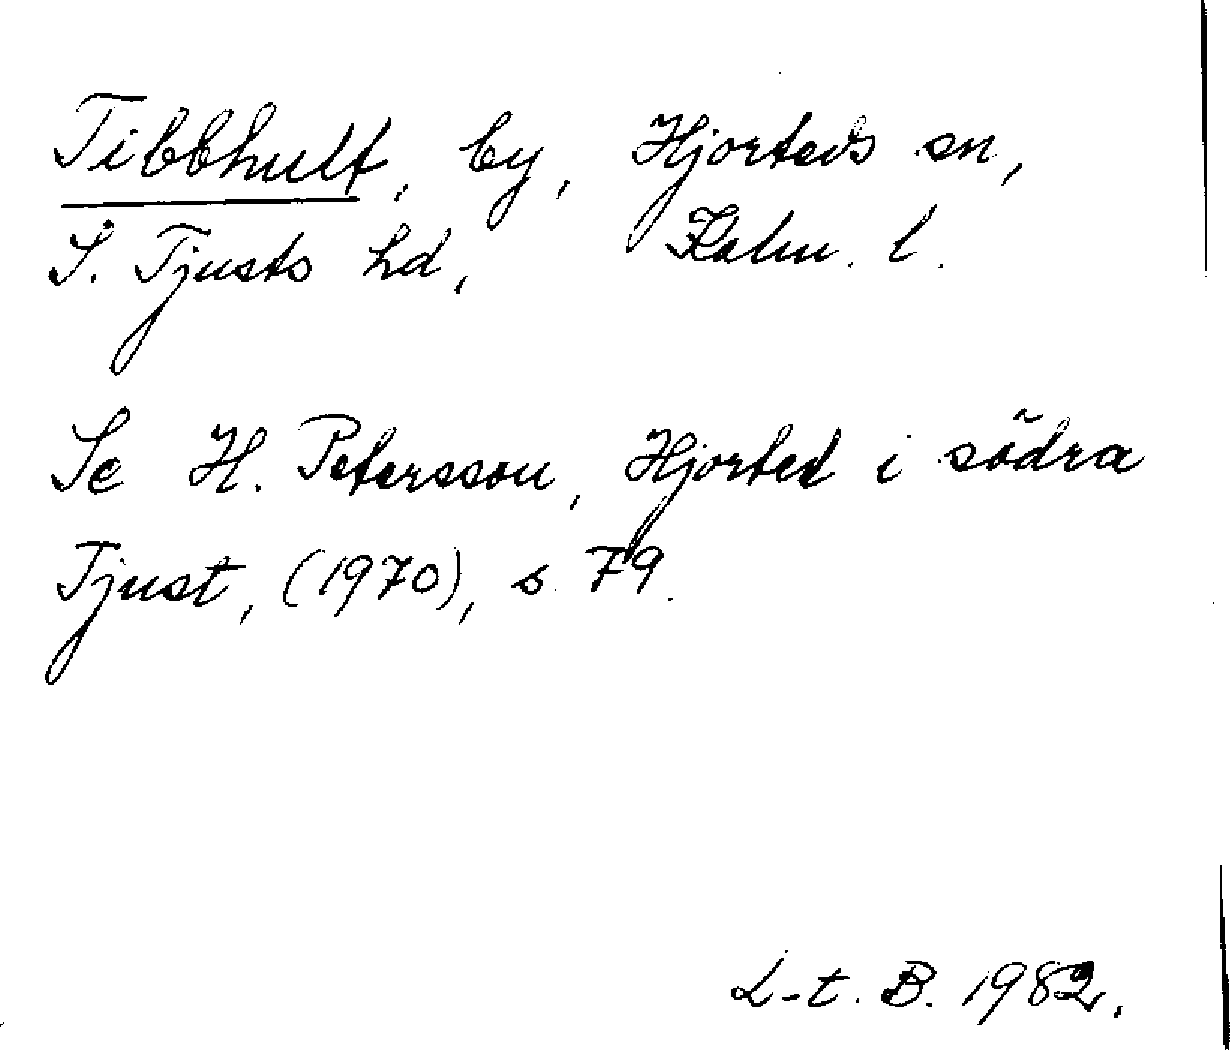 Tibbhult, by, Hjorteds sn,
S. Tjusts hd, Kalm. l.
Se H. Petersson, Hjorted i södra
Tjust, (1970), s. 79.
L-t. B. 1982.